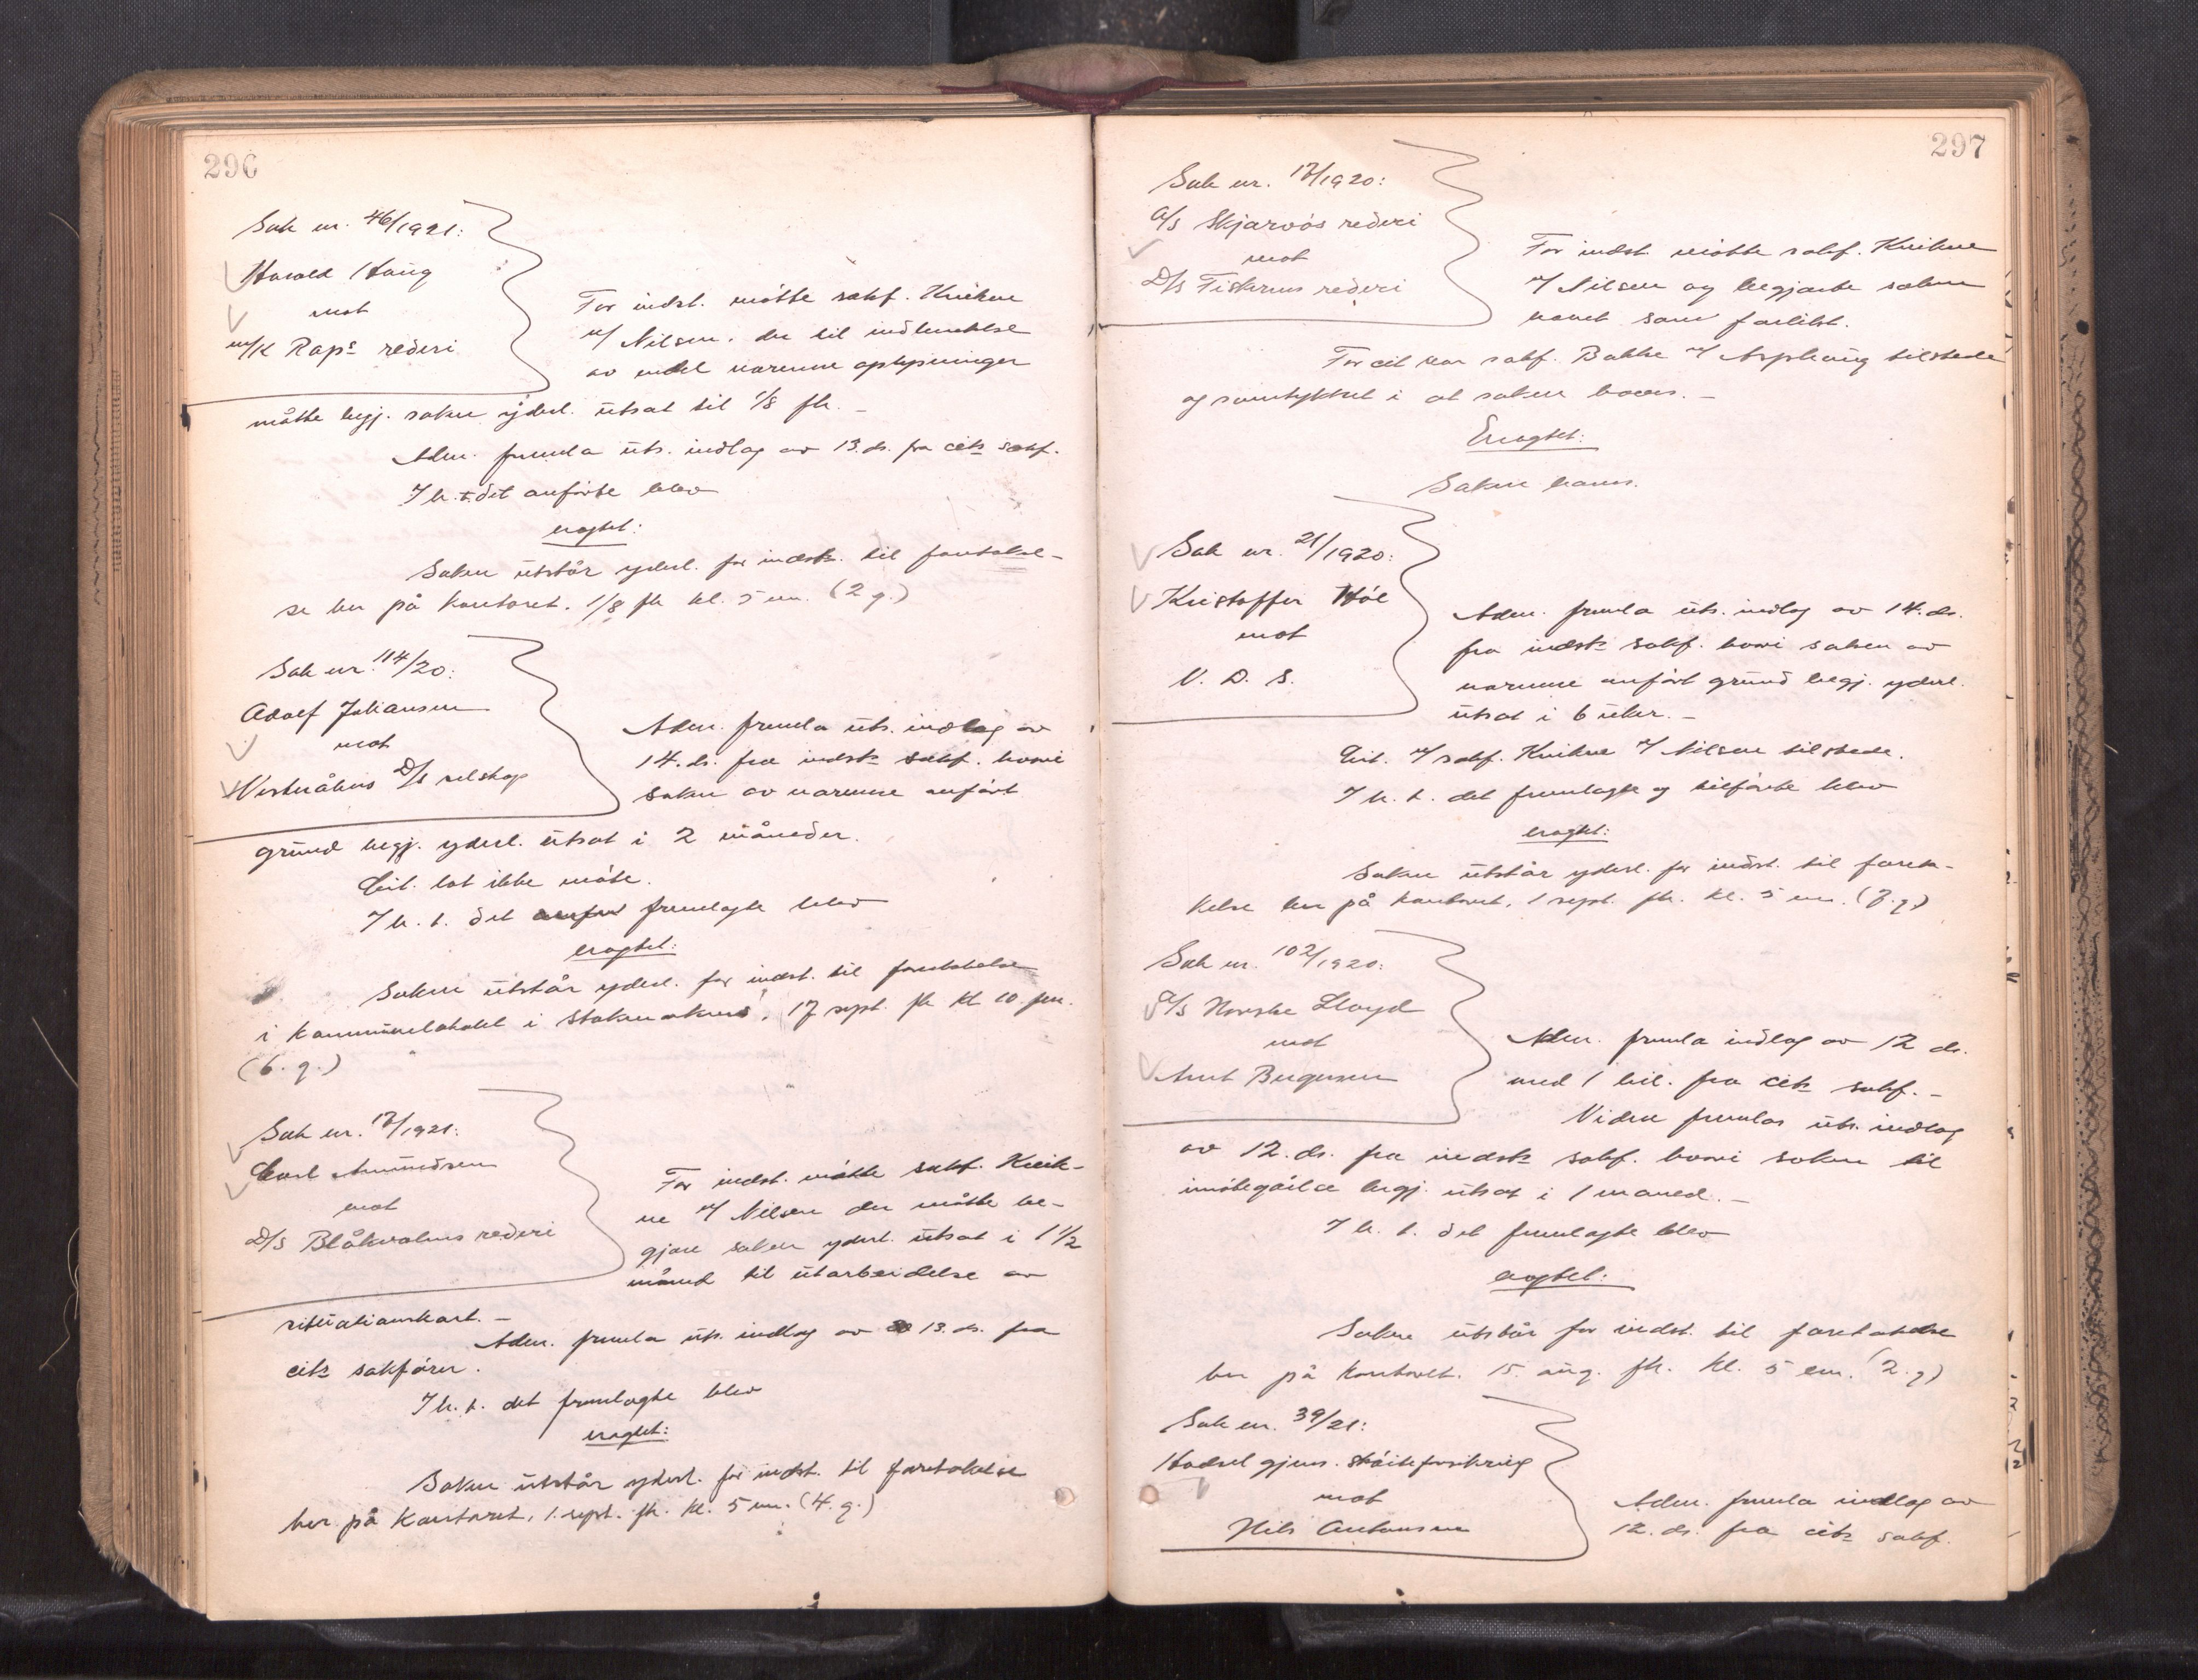 296
Sak nr. 46/1921:
Harald Haug
mot
m/k Raps rederi
For indst. møtte sakf. Knikne
v/ Nilsen, der til indhentelse
av endel nærmere oplysninger
måtte begj. saken yderl. utsat til 1/8 ft. –
Adm. fremla uts. indlag av 13. ds. fra cits sakf.
I h. t. det anførte blev
eragtet:
Saken utstår yderl. for indst. til foretakel-
se her på kontoret, 1/8 ft kl. 5 em. (2 g.)
Sak nr. 114/20:
Adolf Johansen
mot
Vesterålens D/s selskap
Adm. fremla uts. indlag av
14. ds. fra indsts sakf. hvori
saken av nærmere anført
grund begj. yderl. utsat i 2 måneder.
Cit. lot ikke møte.
I h. t. det fremlagte blev
eragtet:
Saken utstår yderl. for indst. til foretakelse
i kommunelokalet i Stokmarknes, 17 sept. ft kl 10 fm.
(6. g.)
Sak nr. 17/1921:
Carl Amundsen
mot
D/s Blåkvalens rederi
For indst. møtte sakf. Knik-
ne v/ Nilsen der måtte be-
gjære saken yderl. utsat i 1 1/2
måned til utarbeidelse av
situationskart. –
Adm. fremla uts. indlag av 13. ds. fra
cits sakfører.
I h. t. det fremlagte blev
eragtet:
Saken utstår yderl. for indst. til foretakelse
her på kontoret, 1. sept. ft. kl. 5 em. (4. g.)
297
Sak nr. 17/1920:
A/s Skjarvøs rederi
mot
D/s Fiskerens rederi
For indst. møtte sakf. Knikne
v/ Nilsen og begjærte saken
hævet som forlikt.
For cit var sakf. Bakke v/ Asphaug tilstede
og samtykket i at saken hæves. –
Eragtet:
Saken hæves.
Sak nr. 21/1920:
Kristoffer Høl
mot
V. D. S.
Adm. fremla uts. indlag av 14. ds.
fra indsts sakf. hvori saken av
nærmere anført grund begj. yderl.
utsat i 6 uker. –
Cit. v/ sakf. Knikne v/ Nilsen tilstede.
I h. t. det fremlagte og tilførte blev
eragtet:
Saken utstår yderl. for indst. til foreta-
kelse her på kontoret, 1 sept. ft. kl. 5 em. (7. g.)
Sak nr. 102/1920:
A/s Norske Lloyd
mot
Arnt Bergersen
Adm. fremla indlag av 12 ds.
med 1 bil. fra cits sakf. –
Videre fremlas uts. indlag
av 12. ds. fra indsts sakf. hvori saken til
imøtegåelse begj. utsat i 1 maned. –
I h. t. det fremlagte blev
eragtet:
Saken utstår for indst. til foretakelse
her på kontoret. 15. aug. ft. kl. 5 em. (2. g)
Sak nr. 39/21:
Hadsel gjens. skøiteforsikring
mot
Nils Antonsen
Adm. fremla indlag av
12. ds. fra cits sakf.